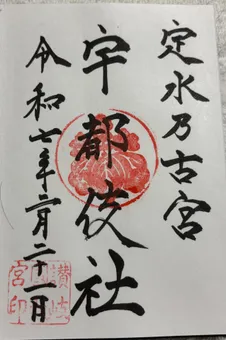 定水乃古宮
宇都伎社
令和七年二月二十一日